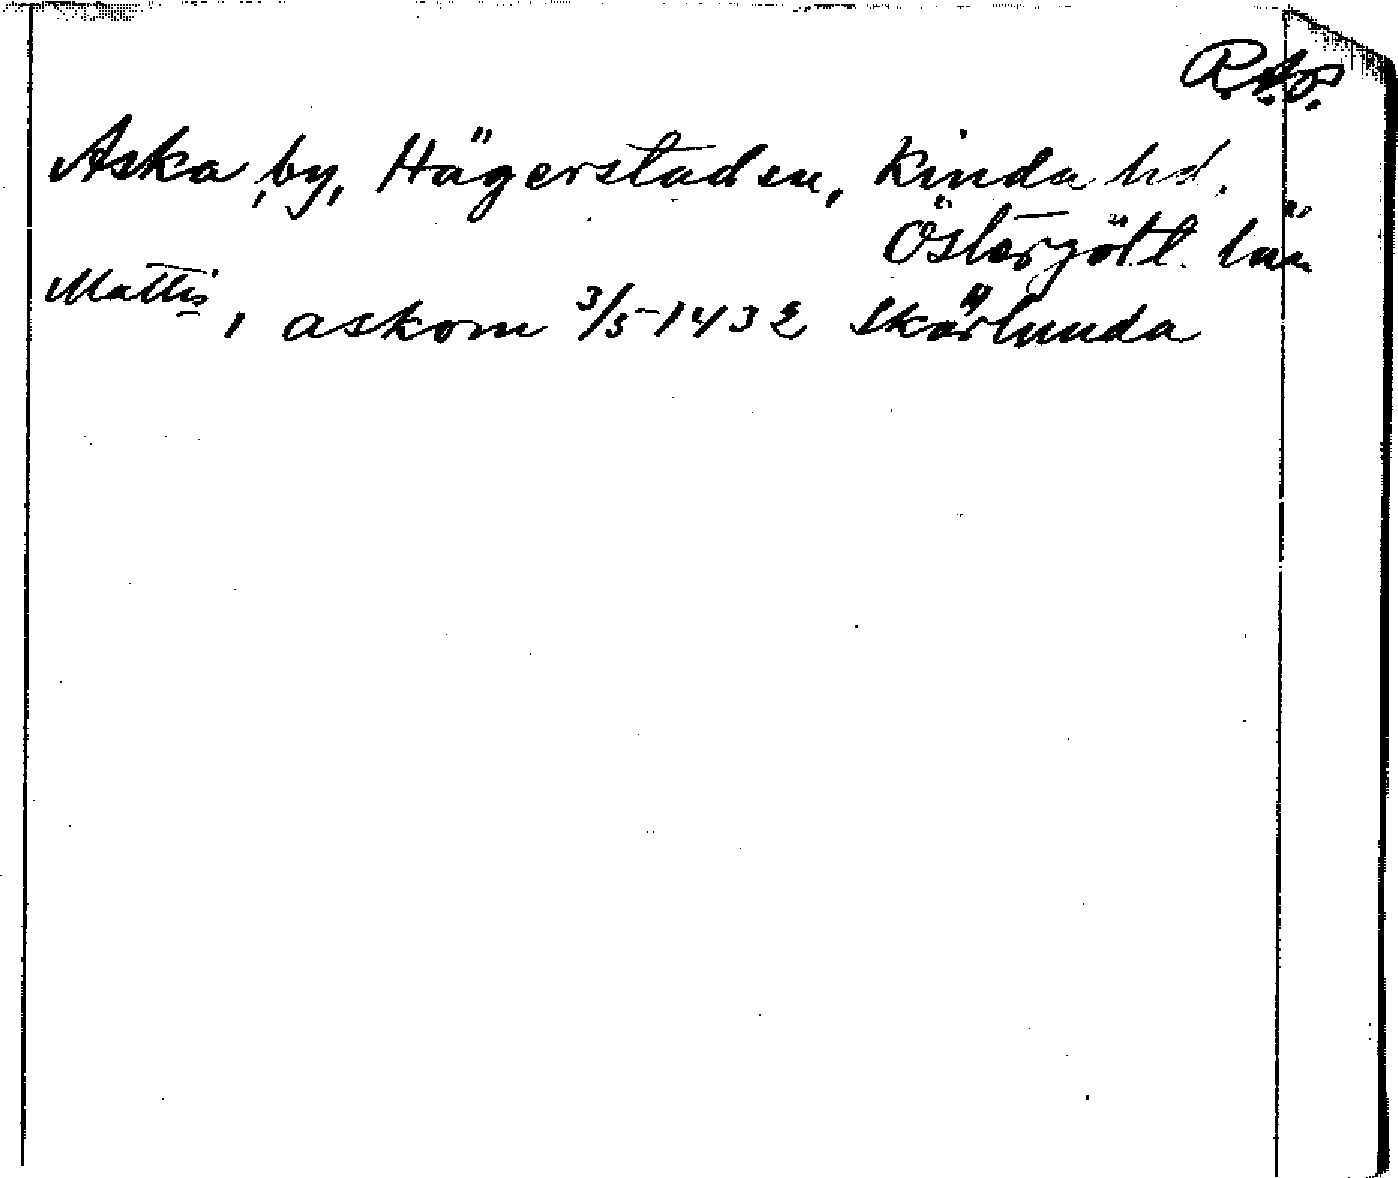 R.Ap.
Aska, by, Hägerstaden, Kinda hd.
Östergötl. län
Mattis, i askom 3/5 1432 Skärlunda